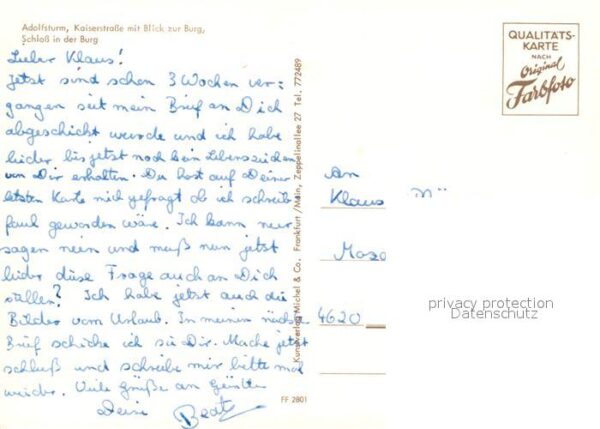 Adolfsturm, Kaiserstraße mit Blick zur Burg,
Schloß in der Burg
Lieber Klaus!
Jetzt sind schon 3 Wochen ver=
gangen seit mein Brief an Dich
abgeschickt wurde und ich habe
leider bis jetzt noch kein Lebenszeichen
von Dir erhalten. Du hast auf Deiner
letzten Karte mich gefragt ob ich schreib
faul geworden wäre. Ich kann nur
sagen nein und muß nun jetzt
leider diese Frage auch an Dich
stellen? Ich habe jetzt auch die
Bilder vom Urlaub. In meinem nächsten
Brief schicke ich sie Dir. Mache jetzt
schluß und schreibe mir bitte mal
wieder. Viele Grüße an
Deine
FF 2801
Kunstverlag Michel & Co., Frankfurt/Main, Zeppelinallee 27 Tel. 772489
QUALITÄTS-
KARTE
NACH
Original
Farbfoto
An
Klaus
4620
privacy protection
Datenschutz